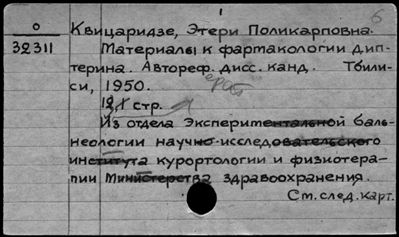 6
1
0
32311
Квицаридзе, Этери Поликарповна.
Материалы к фармакологии дип-
терина. Автореф. дисс. канд. Тбили-
си, 1950.
стр.
Из отдела Экспериментальной баль-
неологии научно-исследовательского
института курортологии и физиотера-
пии Министерства здравоохранения.
См. след. карт.